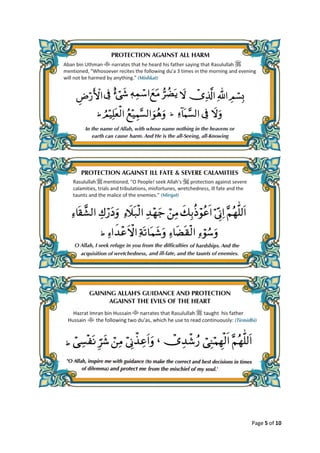 PROTECTION AGAINST ALL HARM
Aban bin Uthman narrates that he heard his father saying that Rasulullah ﷺ
mentioned, "Whosoever recites the following du'a 3 times in the morning and evening
will not be harmed by anything." (Mishkat)
بِسْمِ اللّٰهِ الَّذِىْ لَا يَضُرُّ مَعَ اسْمِهٖ شَىْءٌ فِى الْاَرْضِ
وَلَا فِى السَّمَآءِ ۔ وَهُوَالسَّمِيْعُ الْعَلِيْمُ ۔
In the name of Allah, with whose name nothing in the heavens or
earth can cause harm. And He is the All-Seeing, all-Knowing
PROTECTION AGAINST ILL FATE & SEVERE CALAMITIES
Rasulullah ﷺ mentioned, "O People! seek Allah's protection against severe
calamities, trials and tribulations, misfortunes, wretchedness, ill fate and the
taunts and the malice of the enemies." (Mirqat)
اَللّٰهُمَّ اِنِّىْ اَعُوْذُبِكَ مِنْ جَهْدِ الْبَلَآءِ وَدَرْكِ الشَّقَآءِ
وَسُوْءِ الْقَضَآءِ وَشَمَاتَةِ الْاَعْدَآءِ ۔
O Allah, I seek refuge in you from the difficulties of hardships, And the
acquisition of wretchedness, and ill-fate, and the taunts of enemies.
GAINING ALLAH'S GUIDANCE AND PROTECTION
AGAINST THE EVILS OF THE HEART
Hazrat Imran bin Hussain narrates that Rasulullah ﷺ taught his father
Hussain the following two du'as, which he use to read continuously: (Tirmidhi)
اَللّٰهُمَّ اَلْهِمْنِىْ رُشْدِىْ ، وَاَعِذْنِىْ مِنْ شَرِّ نَفْسِىْ ۔
'O Allah, inspire me with guidance (to make the correct and best decisions in times
of dilemma) and protect me from the mischief of my soul.'
Page 5 of 10